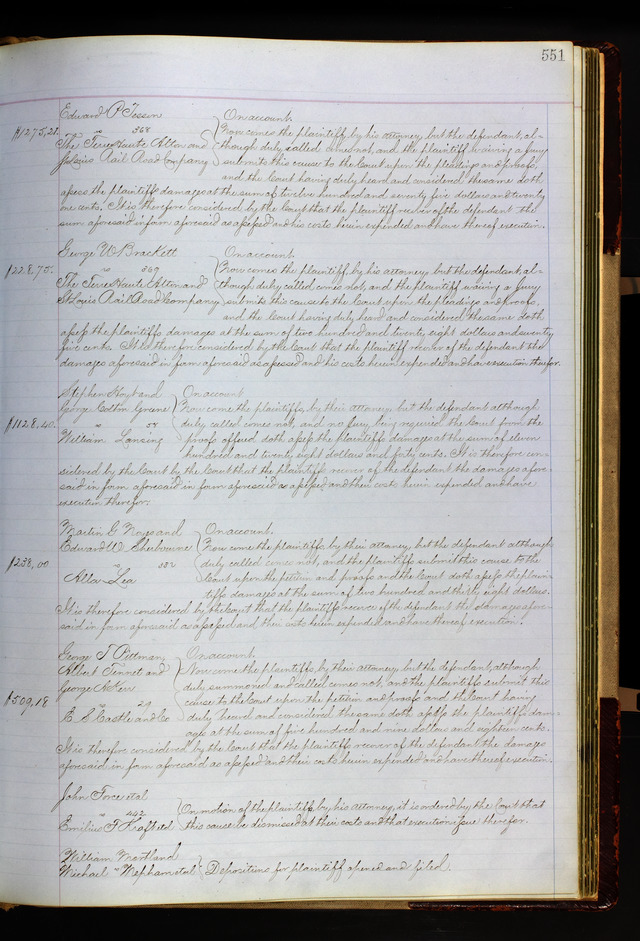 551
Edward P Tesson On account.
$1275,21. vs 568 Now comes the plaintiff by his attorney, but the defendant, al-
The Terre Haute Alton and though duly called comes not, and the plaintiff waiving a jury
St Louis Rail Road Company submits this cause to the Court upon the pleadings and proofs,
and the Court having duly heard and considered the same doth
assess the plaintiffs damages at the sum of twelve hundred and seventy five dollars and twenty
one cents. It is therefore considered by the Court that the plaintiff recover of the defendant the
sum aforesaid in form aforesaid as assessed and his costs herein expended and have thereof execution.
George W Brackett On account.
$228,75. vs 569 Now comes the plaintiff by his attorney, but the defendant, al-
The Terre Haute Alton and though duly called comes not, and the plaintiff waiving a jury
St Louis Rail Road Company submits this cause to the Court upon the pleadings and proofs,
and the Court having duly heard and considered the same doth
assess the plaintiffs damages at the sum of two hundred and twenty eight dollars and seventy
five cents. It is therefore considered by the Court that the plaintiff recover of the defendant the
damages aforesaid in form aforesaid as assessed and his costs herein expended and have execution therefor.
Stephen Hoyt and On account
George Colton Greene Now come the plaintiffs, by their attorney, but the defendant although
$1128.40. vs duly called comes not, and no jury being required the Court from the
William Lansing proofs offered doth assess the plaintiffs damages at the sum of eleven
hundred and twenty eight dollars and forty cents. It is therefore con-
sidered by the Court by the Court that the plaintiffs recover of the defendant the damages afore-
said in form aforesaid in form aforesaid as assessed and their costs herein expended and have
execution therefor.
Martin G and On account.
Edward W. Sherbourne Now come the plaintiffs by their attorney, but the defendant although
$238,00 vs 532 duly called comes not, and the plaintiffs submit this cause to the
Lea Court upon the petition and proofs and the Court doth assess the plain-
tiffs damages at the sum of two hundred and thirty eight dollars.
It is therefore considered by the Court that the plaintiffs recover of the defendant the damages afore-
said in form aforesaid as assessed and their costs herein expended and have thereof execution.
George T Pittman On account.
Albert Tennet and Now come the plaintiffs, by their attorney but the defendant, although
George duly summoned and called comes not, and the plaintiffs submit this
$509,18 vs 29 cause to the Court upon the petition and proofs and the Court having
E. S Castle and Co duly heard and considered the same doth assess the plaintiffs dam-
ages at the sum of five hundred and nine dollars and eighteen cents.
It is therefore considered by the Court that the plaintiffs recover of the defendant the damages
aforesaid in form aforesaid as assessed and their costs herein expended and have thereof execution.
John Torce et al
vs 442 On motion of the plaintiffs by his attorney, it is ordered by the Court that
Emilius T et al this cause be dismissed at their costs and that execution issue therefor.
William Wortland
Michael vs Mepham et al Depositions for plaintiff opened and filed.